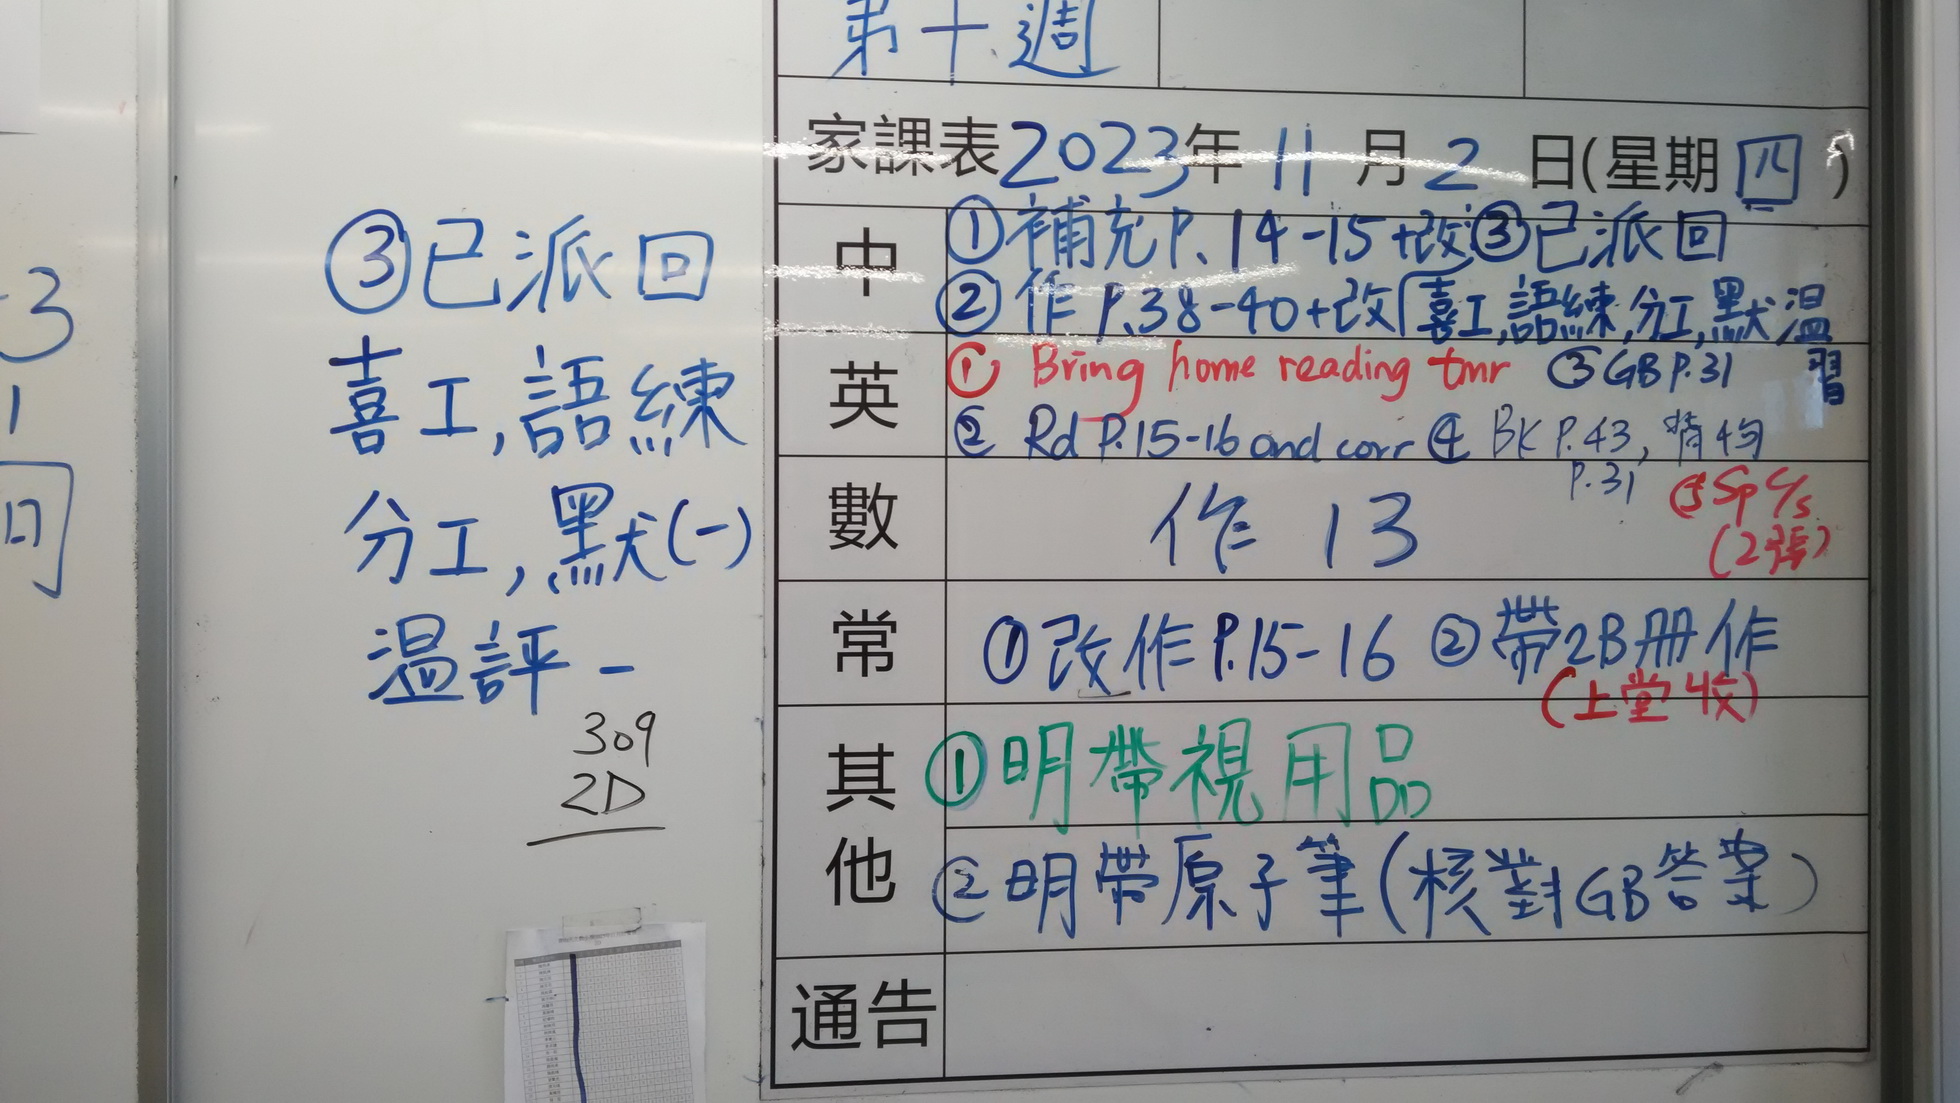 第十週
家課表2023年11月2日(星期四)
中
①補充P.14-15+改③已派回
②作P.38-40+改 喜工,語練,分工,默温
習
英
① Bring home reading tmr ③GB P.31
② Rd P.15-16 and corr ④ BK P.43,
P.31
⑤Sp C/s
(2張)
數
作 13
常
①改作P.15-16 ②帶2B冊作
(上堂收)
其他
①明帶視用品
②明帶原子筆(核對GB答案)
通告
③已派回
喜工,語練
分工,默(一)
温評一
309
2D
3
1